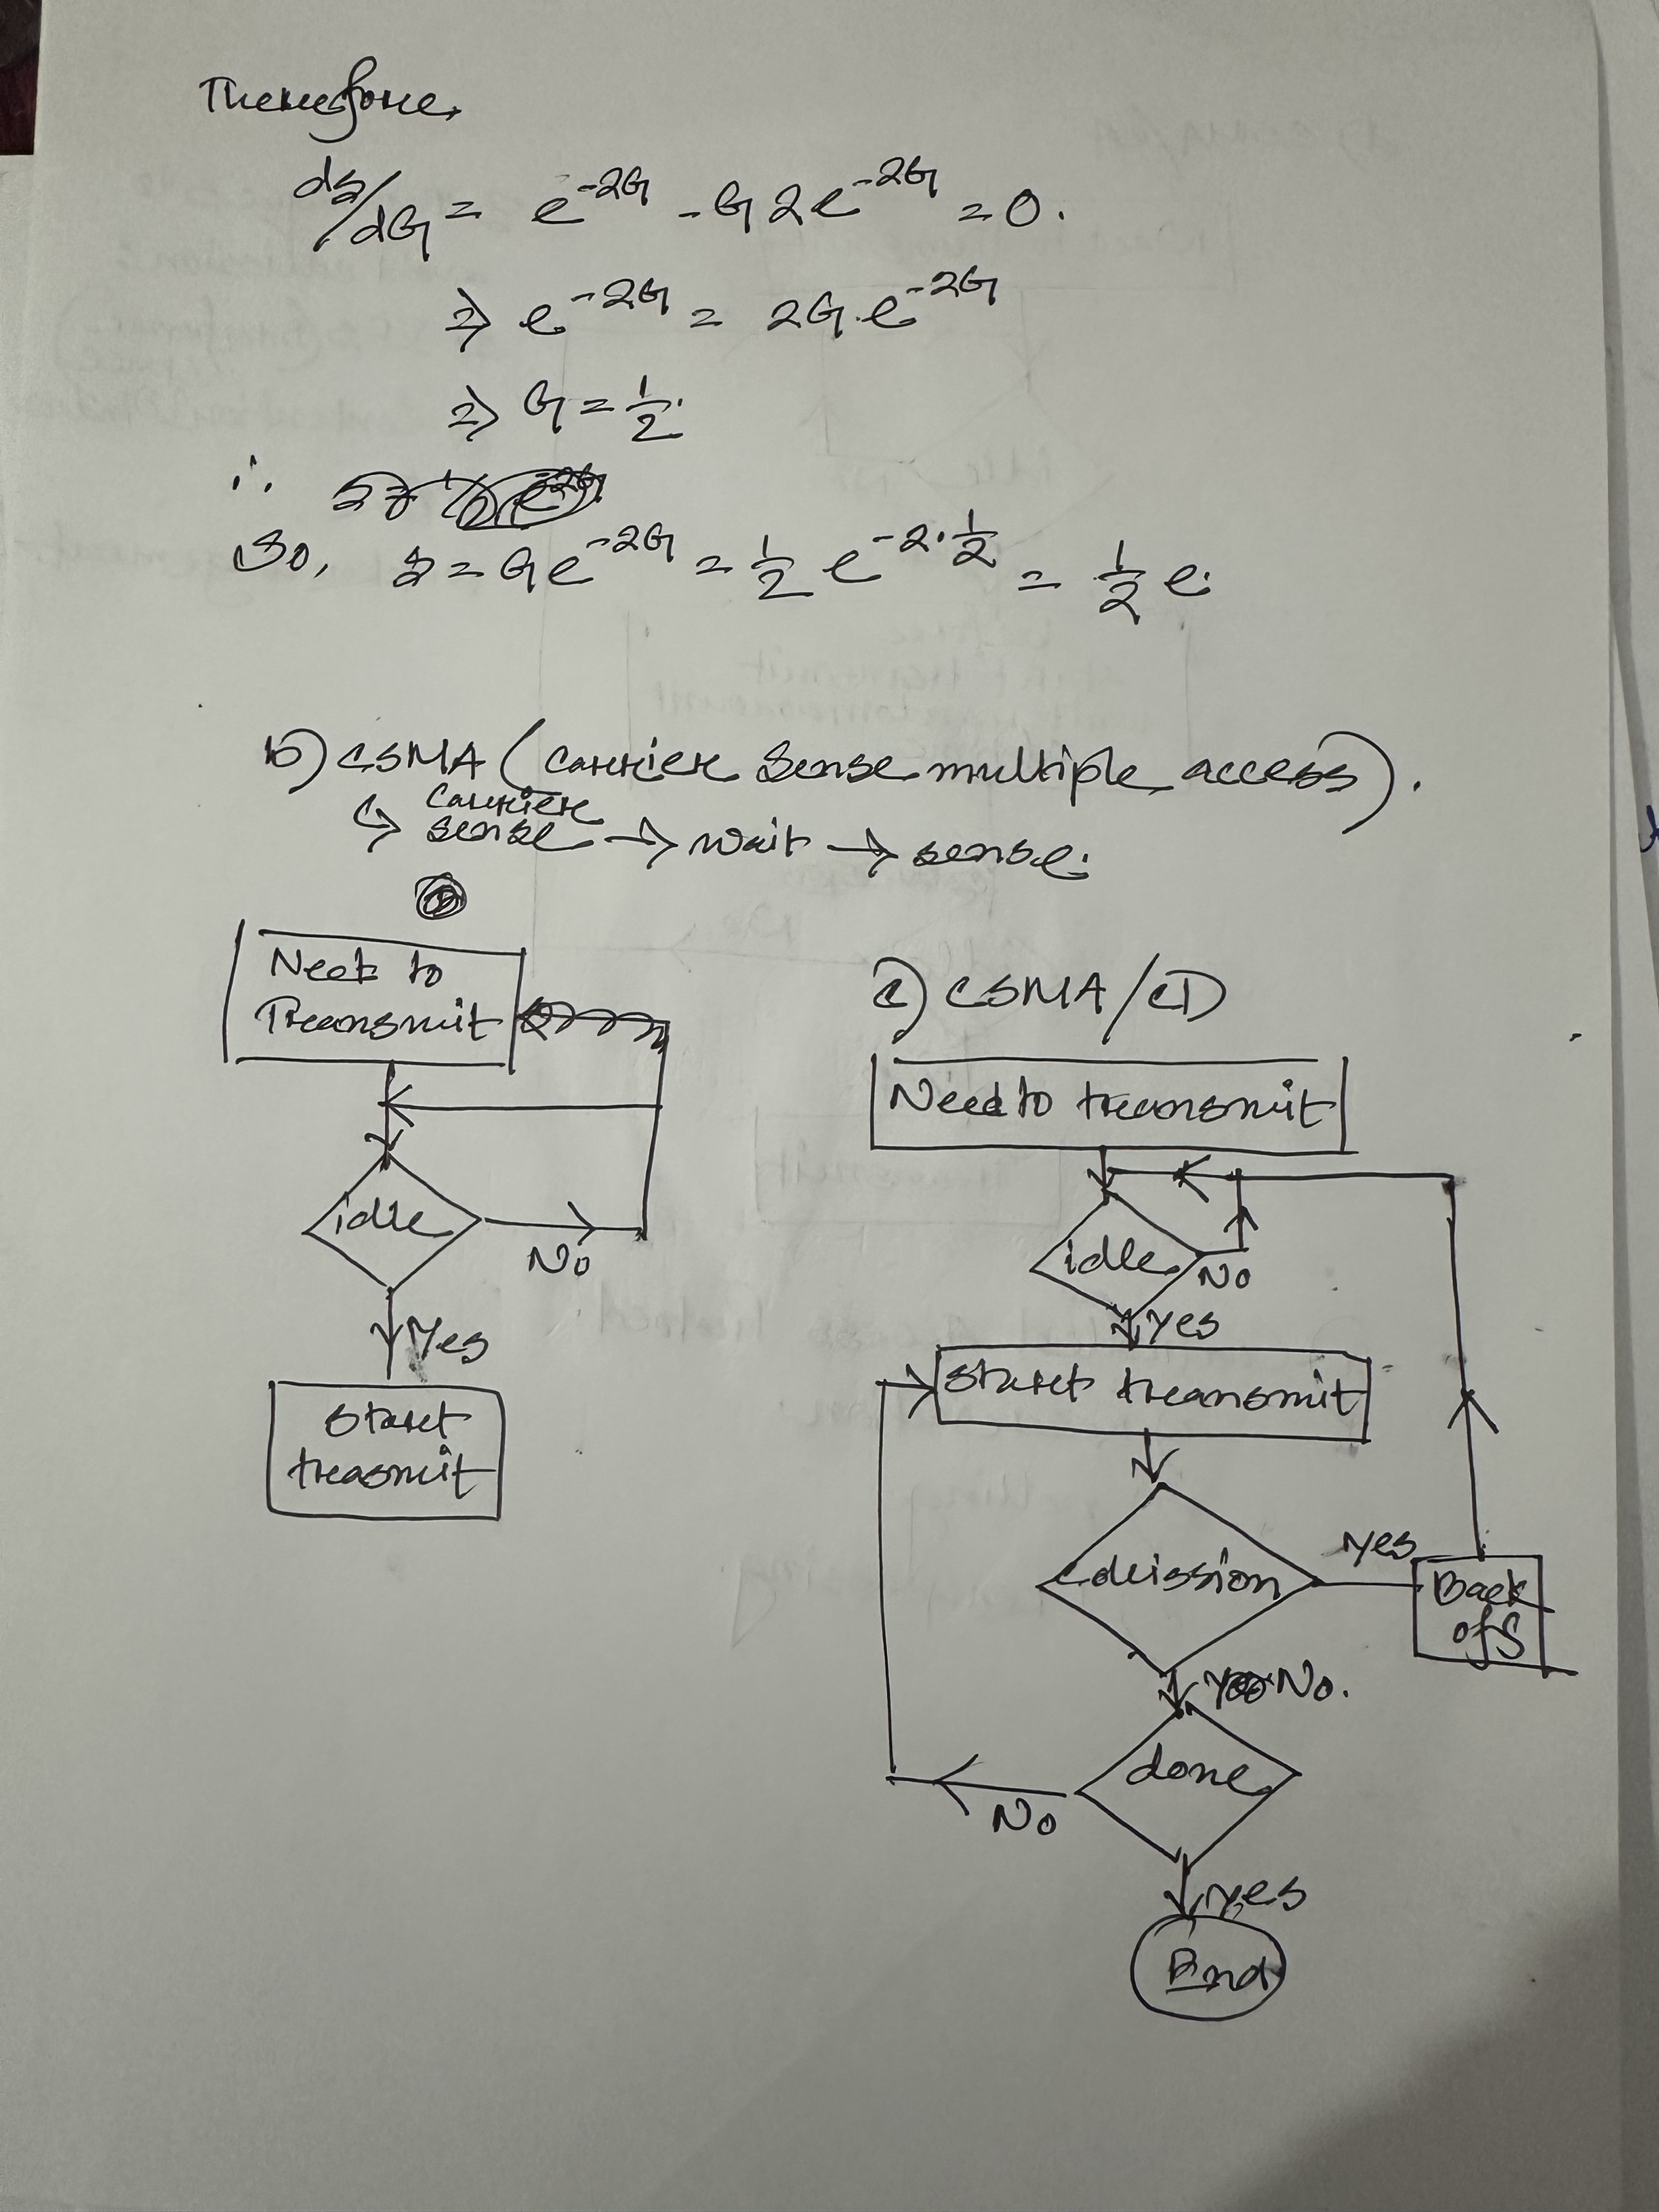 Therefore,
ds/dG = e^-2G - G 2e^-2G = 0.
⇒ e^-2G = 2G.e^-2G
⇒ G = 1/2.
∴
So, S = Ge^-2G = 1/2 e^-2·1/2 = 1/2 e.
b) CSMA (carrier sense multiple access).
↳ carrier sense → wait → sense.
Need to
Transmit
idle
No
Yes
start
trasmit
c) CSMA/CD
Need to transmit
idle
No
Yes
Start transmit
collission
Yes
Back
off
No.
done
No
yes
End